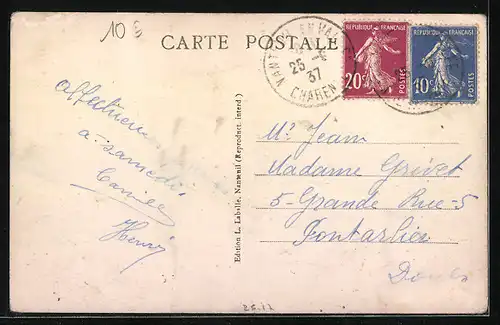 10
CARTE POSTALE
REPUBLIQUE FRANÇAISE
20c
POSTES
REPUBLIQUE FRANÇAISE
10c
POSTES
25 -
37
CHAREN
à samedi
Camille
Henri
Edition L. Labville, Nanteuil (Reproduct. interd)
Mr Jean
Madame Grivet
5-Grande Rue-5
Pontarlier
Doubs